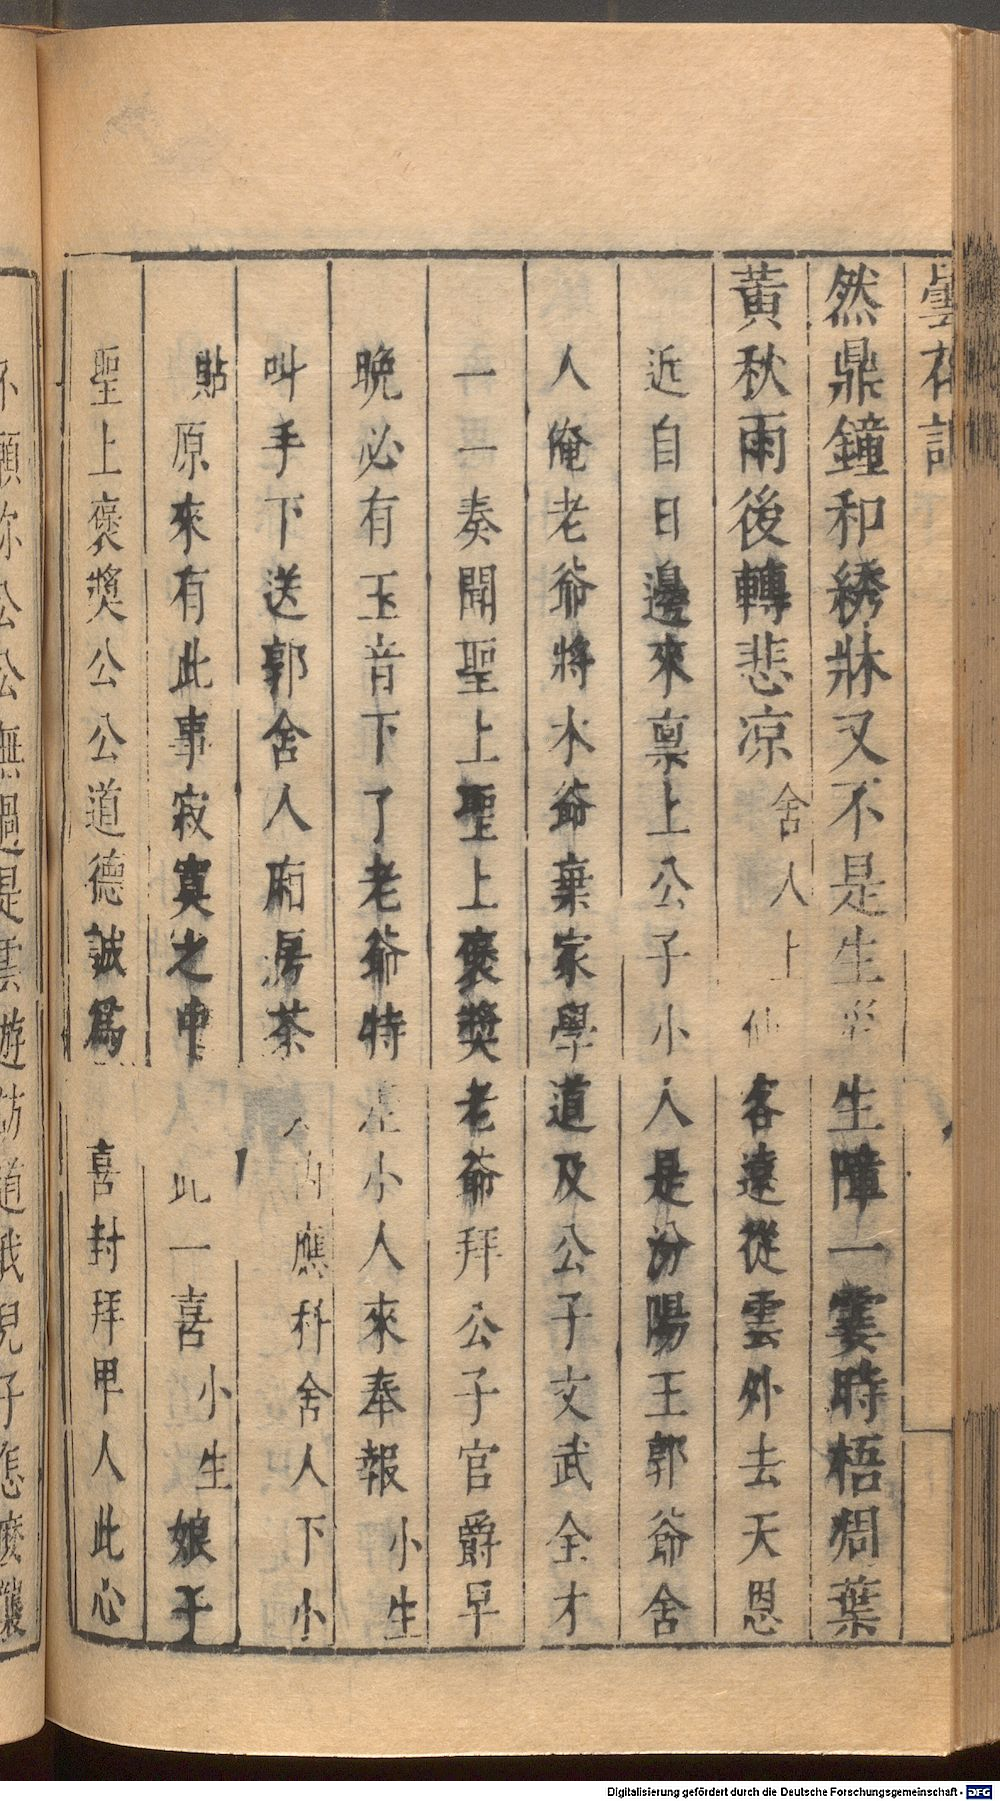 曇花記
然鼎鐘和綉牀又不是生生障一霎時梧凋葉
黃秋雨後轉悲凉舍人上仙客遠從雲外去天恩
近自日邊來禀上公子小人是汾陽王郭爺舍
人俺老爺將木爺棄家學道及公子文武全才
一一奏聞聖上聖上褒獎老爺拜公子官爵早
晚必有玉音下了老爺特差小人來奉報小生
叫手下送郭舍人廂房茶內應科舍人下小
貼原來有此事寂寞之中此一喜小生娘子
聖上褒奬公公道德誠爲喜封拜甲人此心
不願你公公無過是雲遊訪道我兒子怎麼襲
Digitalisierung gefördert durch die Deutsche Forschungsgemeinschaft - DFG